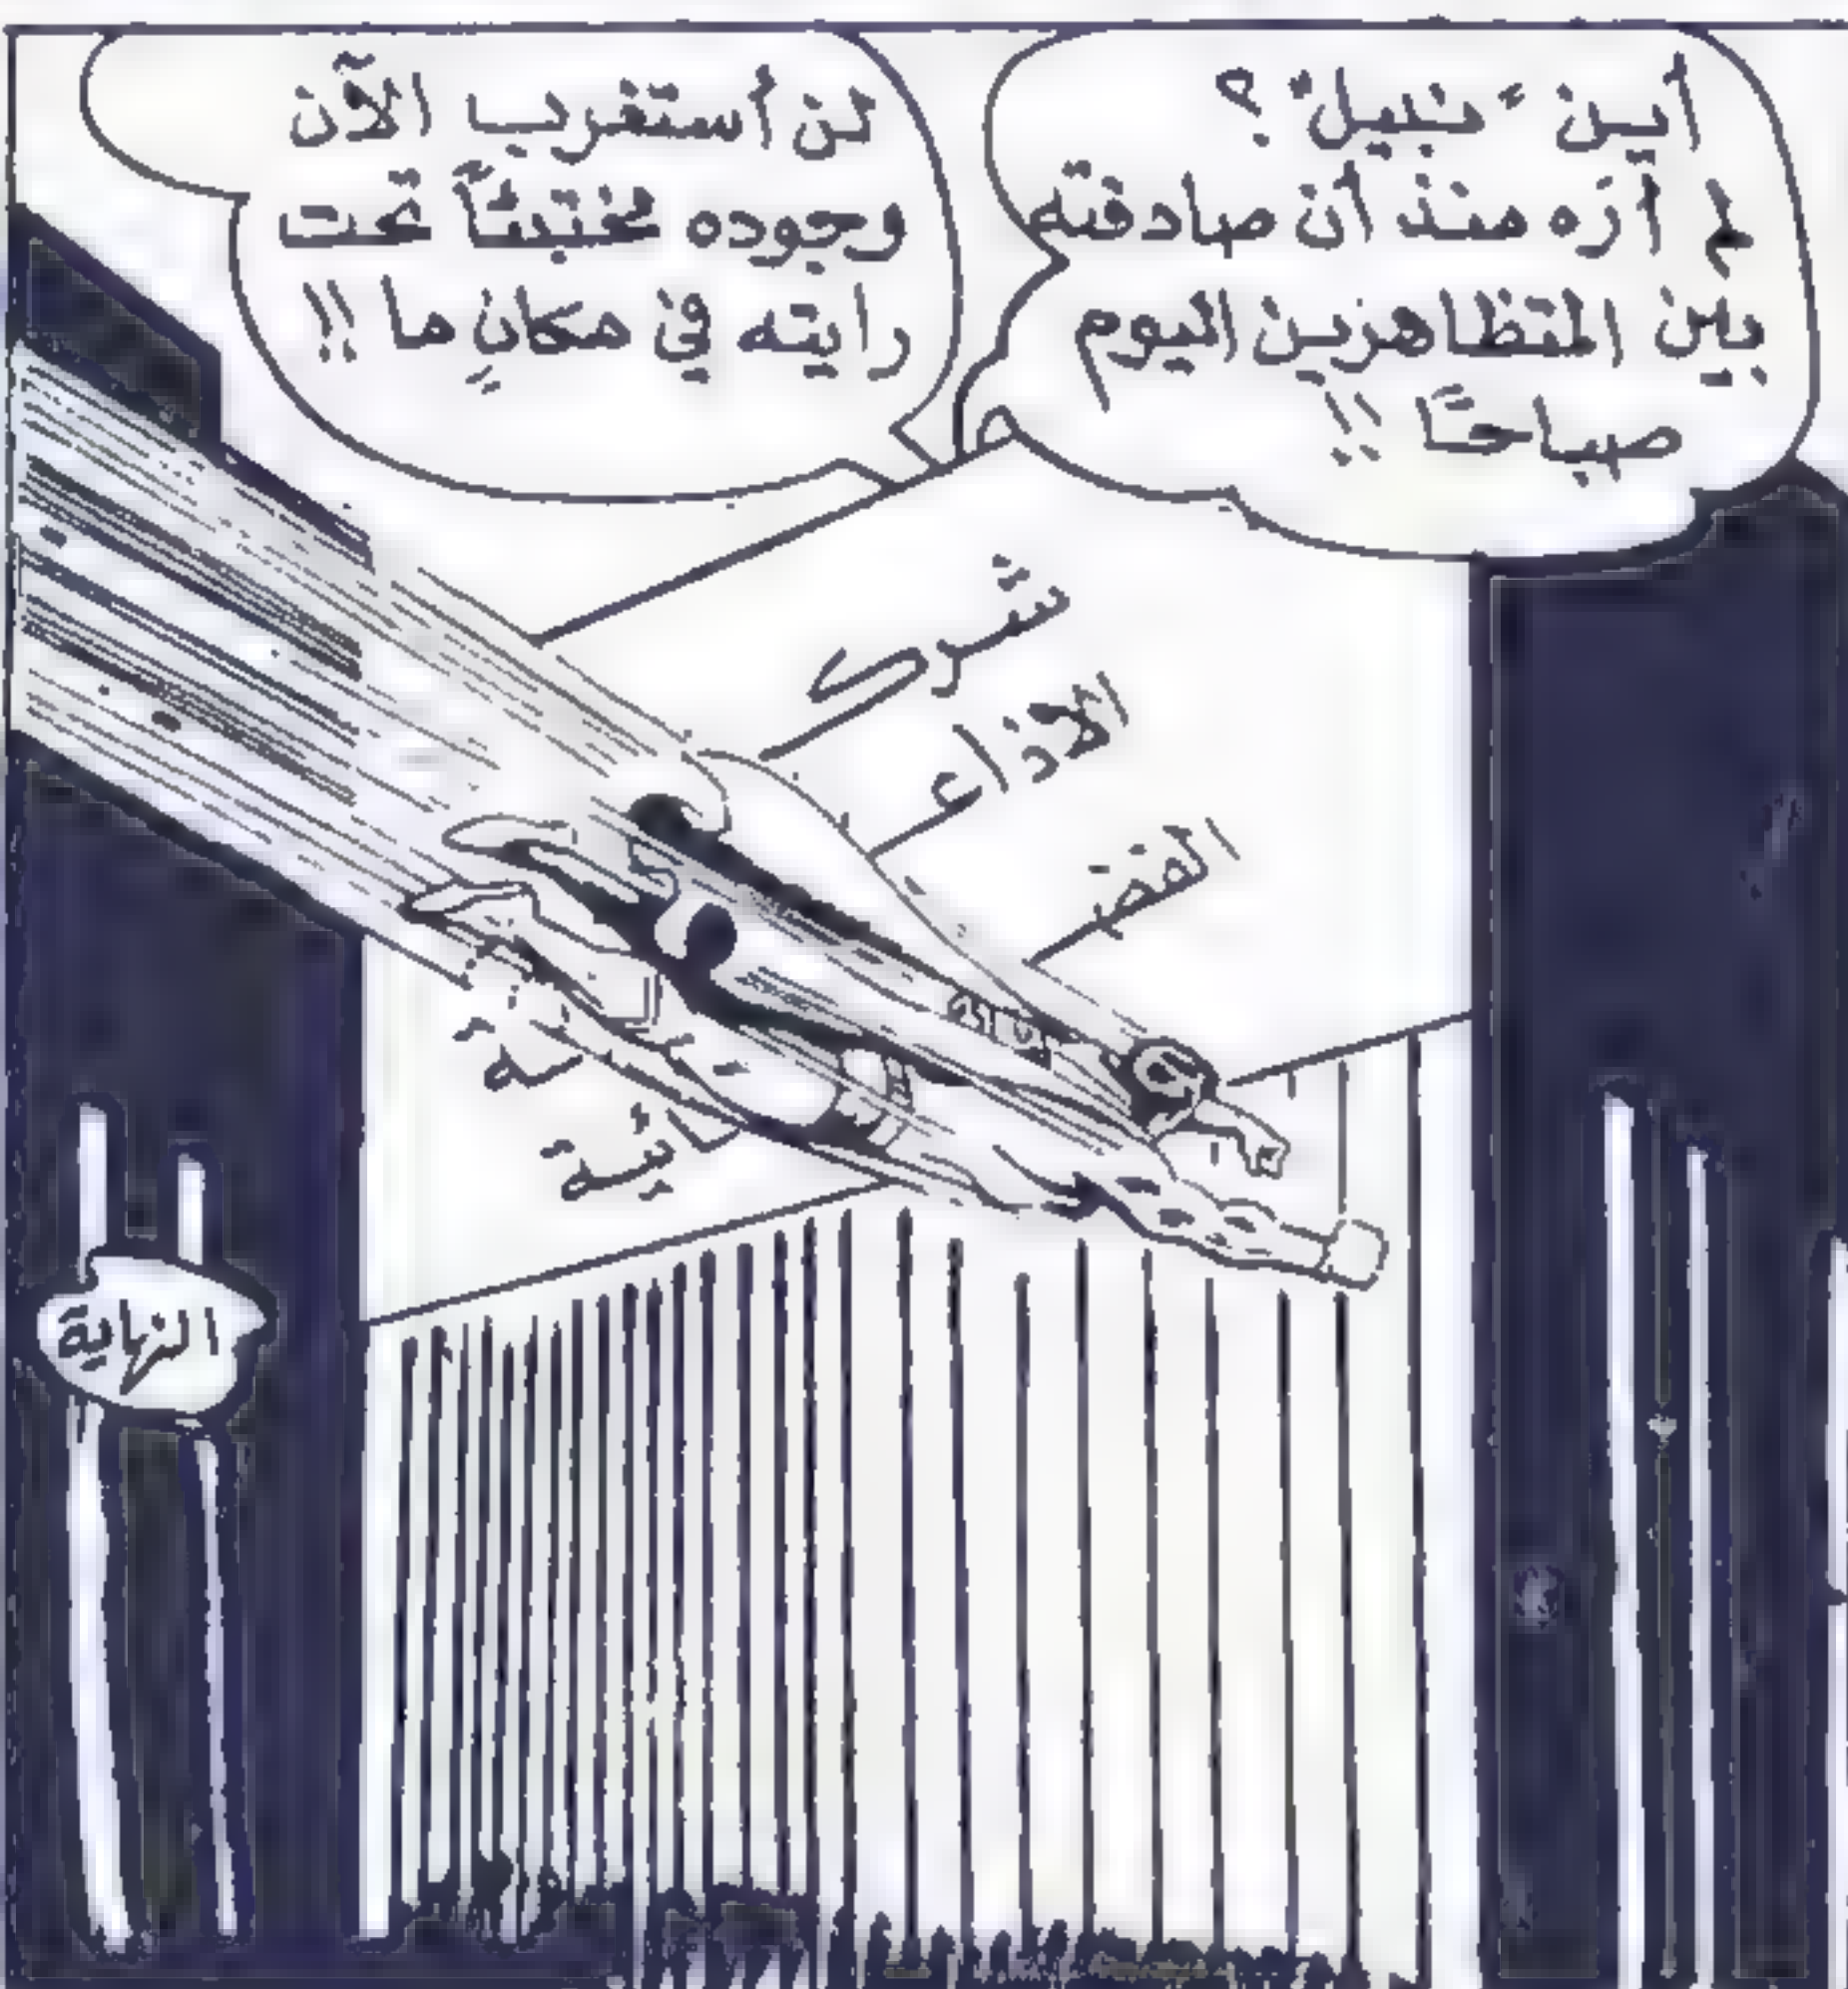 أين "نبيل" ؟
لم أرَه منذ أن صادفته
بين المتظاهرين اليوم
صباحًا !!
لن أستغرب الآن
وجوده مختبئًا تحت
رايته في مكانٍ ما !!
النهاية